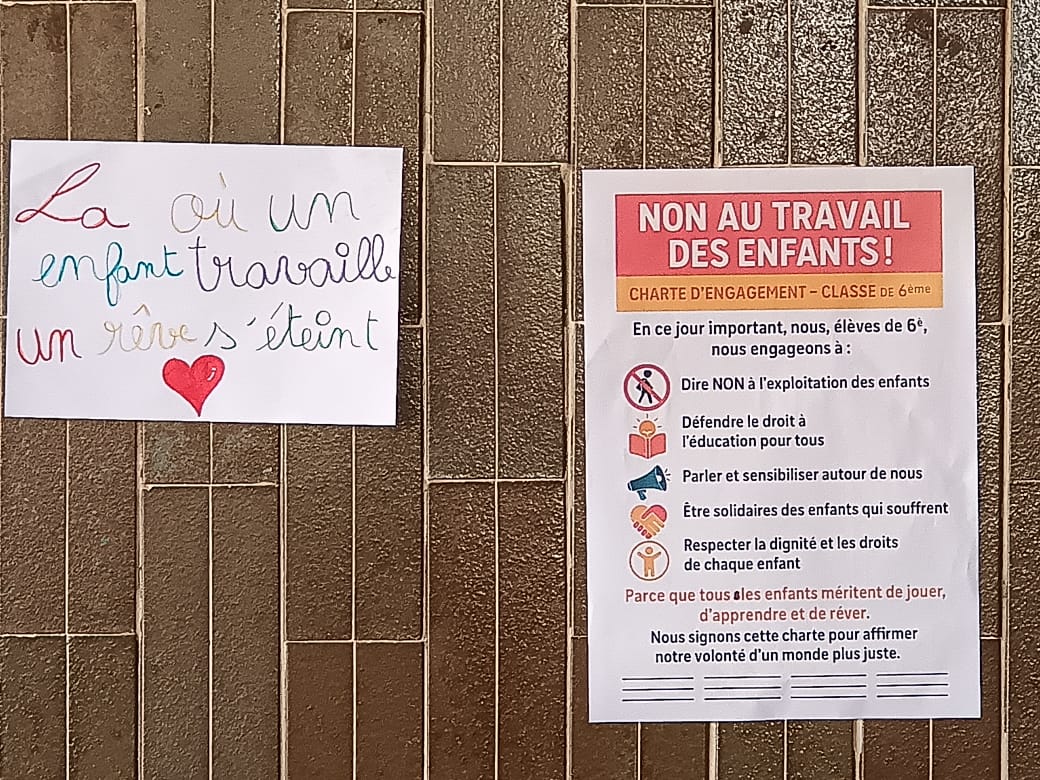 La où un
enfant travaille
un rêve s'éteint
NON AU TRAVAIL
DES ENFANTS !
CHARTE D'ENGAGEMENT – CLASSE DE 6ème
En ce jour important, nous, élèves de 6è,
nous engageons à :
Dire NON à l'exploitation des enfants
Défendre le droit à
l'éducation pour tous
Parler et sensibiliser autour de nous
Être solidaires des enfants qui souffrent
Respecter la dignité et les droits
de chaque enfant
Parce que tous les enfants méritent de jouer,
d'apprendre et de réver.
Nous signons cette charte pour affirmer
notre volonté d'un monde plus juste.